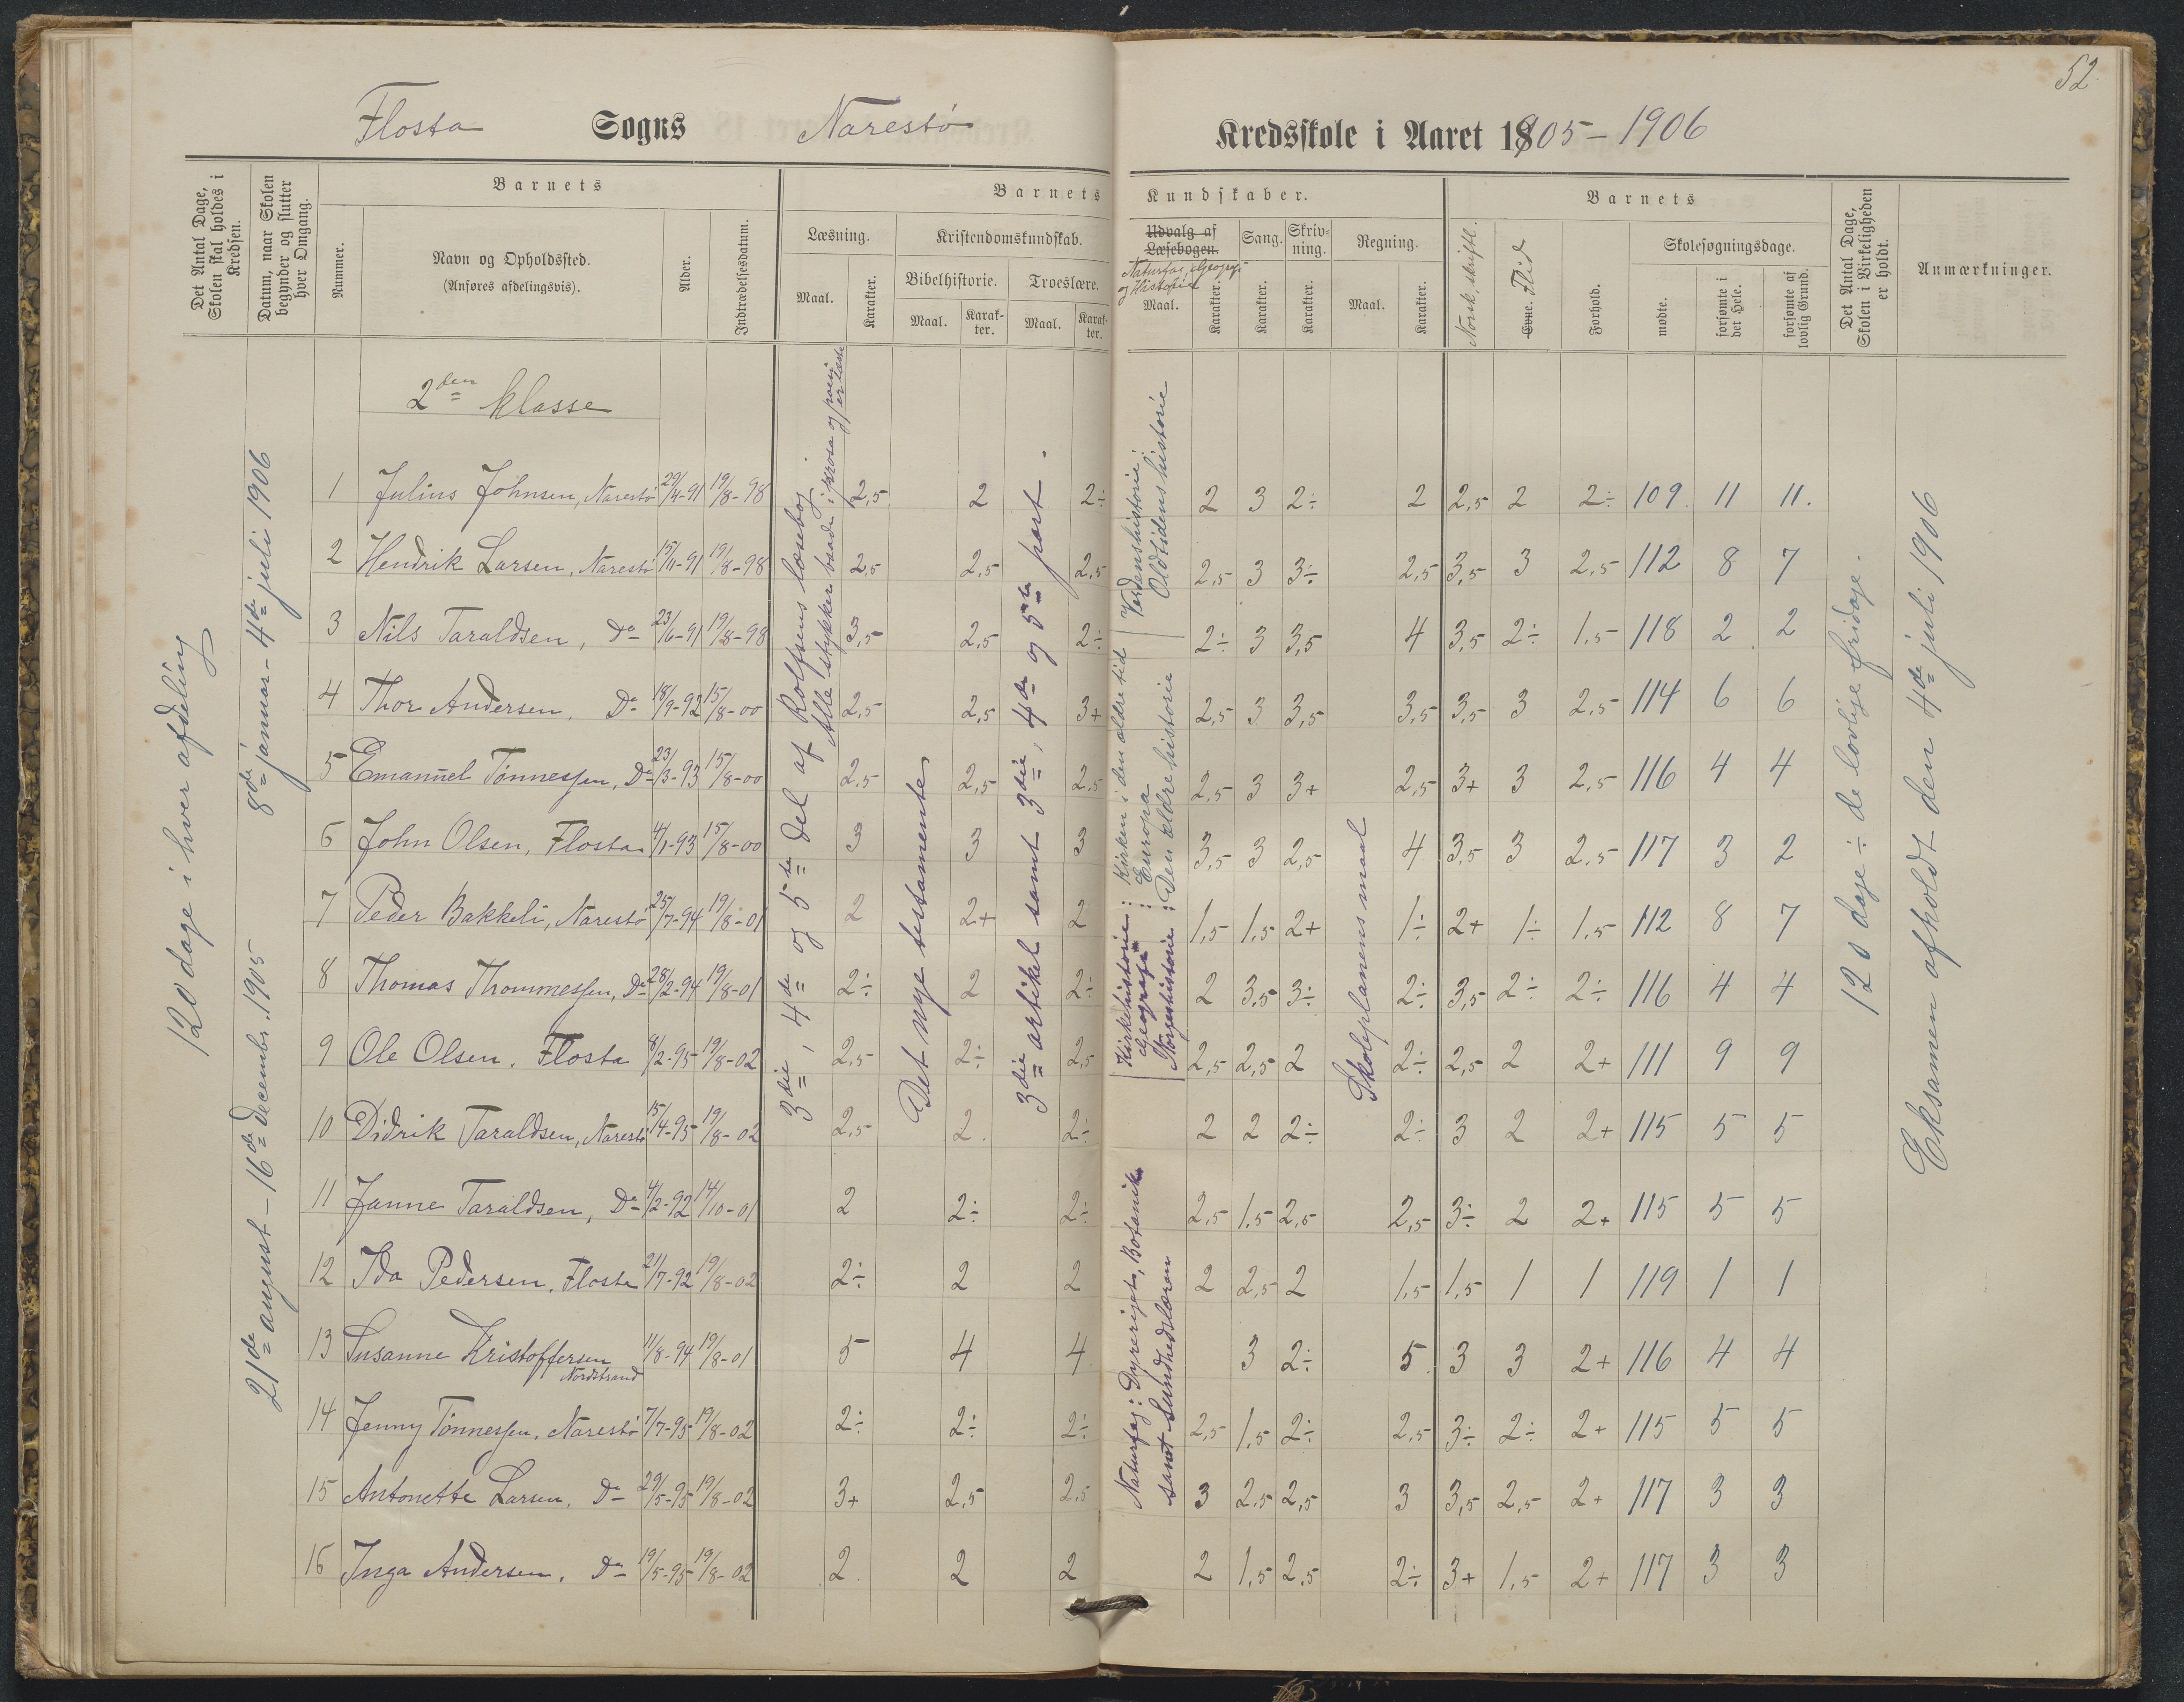 52
Flosta Sogns Narestø Kredsskole i Aaret 1905-1906
Det Antal Dage, Skolen skal holdes i Kredsen.
Datum, naar Skolen begynder og slutter hver Omgang.
Barnets
Nummer.
Navn og Opholdssted.
(Anføres afdelingsvis).
Alder.
Indtrædelsesdatum.
Barnets Kundskaber.
Læsning.
Maal. Karakter.
Kristendomskundskab.
Bibelhistorie. Troeslære.
Maal. Karakter. Maal. Karakter.
Udvalg af Læsebogen.
Naturfag, Geografi og Historie
Maal. Karakter.
Sang. Karakter.
Skrivning. Karakter.
Regning.
Maal. Karakter.
Barnets
Norsk, skriftl.
Evne. Flid
Forhold.
Skolesøgningsdage.
mødte.
forsømte i det Hele.
forsømte af lovlig Grund.
Det Antal Dage, Skolen i Virkeligheden er holdt.
Anmærkninger.
120 dage i hver afdeling
21de august - 16de december 1905
8de januar - 4de juli 1906
2den klasse
3die, 4de og 5te del af Rolfsens læsebog
Alle stykker baade i prosa og poesi er læste
Det nye testamente
3die artikel samt 3die, 4de og 5te part.
Kirkehistorie: Kirken i den ældre tid
Geografi: Europa
Norgeshistorie: Den ældre historie
Verdenshistorie: Oldtidens historie
Naturfag: Dyreriget, Botanik
samt Sundhedslæren
Skoleplanens maal
120 dage ÷ de lovlige fridage.
Eksamen afholdt den 4de juli 1906
1 Julius Johnsen, Narestø 29/4-91 19/8-98 2,5 2 2÷ 2 3 2÷ 2 2,5 2 2÷ 109 11 11.
2 Hendrik Larsen, Narestø 15/11-91 19/8-98 2,5 2,5 2,5 2,5 3 3÷ 2,5 3,5 3 2,5 112 8 7
3 Nils Taraldsen, Do 23/6-91 19/8-98 3,5 2,5 2÷ 2÷ 3 3,5 4 3,5 2÷ 1,5 118 2 2
4 Thor Andersen, Do 18/9-92 15/8-00 2,5 2,5 3+ 2,5 3 3,5 3,5 3,5 3 2,5 114 6 6
5 Emanuel Tønnessen, Do 23/3-93 15/8-00 2,5 2,5 2,5 2,5 3 3+ 2,5 3+ 3 2,5 116 4 4
6 John Olsen, Flosta 4/1-93 15/8-00 3 3 3 3,5 3 2,5 4 3,5 3 2,5 117 3 2
7 Peder Bakkeli, Narestø 25/7-94 19/8-01 2 2+ 2 1,5 1,5 2+ 1÷ 2+ 1÷ 1,5 112 8 7
8 Thomas Thommessen, Do 28/2-94 19/8-01 2÷ 2 2÷ 2 3,5 3÷ 2÷ 3,5 2÷ 2÷ 116 4 4
9 Ole Olsen, Flosta 8/2-95 19/8-02 2,5 2÷ 2,5 2,5 2,5 2 2÷ 2,5 2 2+ 111 9 9
10 Didrik Taraldsen, Narestø 15/4-95 19/8-02 2,5 2. 2÷ 2 2 2÷ 2÷ 3 2 2+ 115 5 5
11 Janne Taraldsen, Do 4/2-92 14/10-01 2 2÷ 2÷ 2,5 1,5 2,5 2,5 3÷ 2 2+ 115 5 5
12 Ida Pedersen, Flosta 21/7-92 19/8-02 2÷ 2 2 2 2,5 2 1,5 1,5 1 1 119 1 1
13 Susanne Kristoffersen Nordstrand 11/8-94 19/8-01 5 4 4 3 2÷ 5 3 3 2+ 116 4 4
14 Jenny Tønnessen, Narestø 7/7-95 19/8-02 2÷ 2÷ 2÷ 2,5 1,5 2÷ 2,5 3÷ 2÷ 2+ 115 5 5
15 Antonette Larsen, Do 29/5-95 19/8-02 3+ 2,5 2,5 3 2,5 2,5 3 3,5 2,5 2+ 117 3 3
16 Inga Andersen, Do 19/5-95 19/8-02 2 2 2 2 1,5 2,5 2÷ 3+ 1,5 2+ 117 3 3